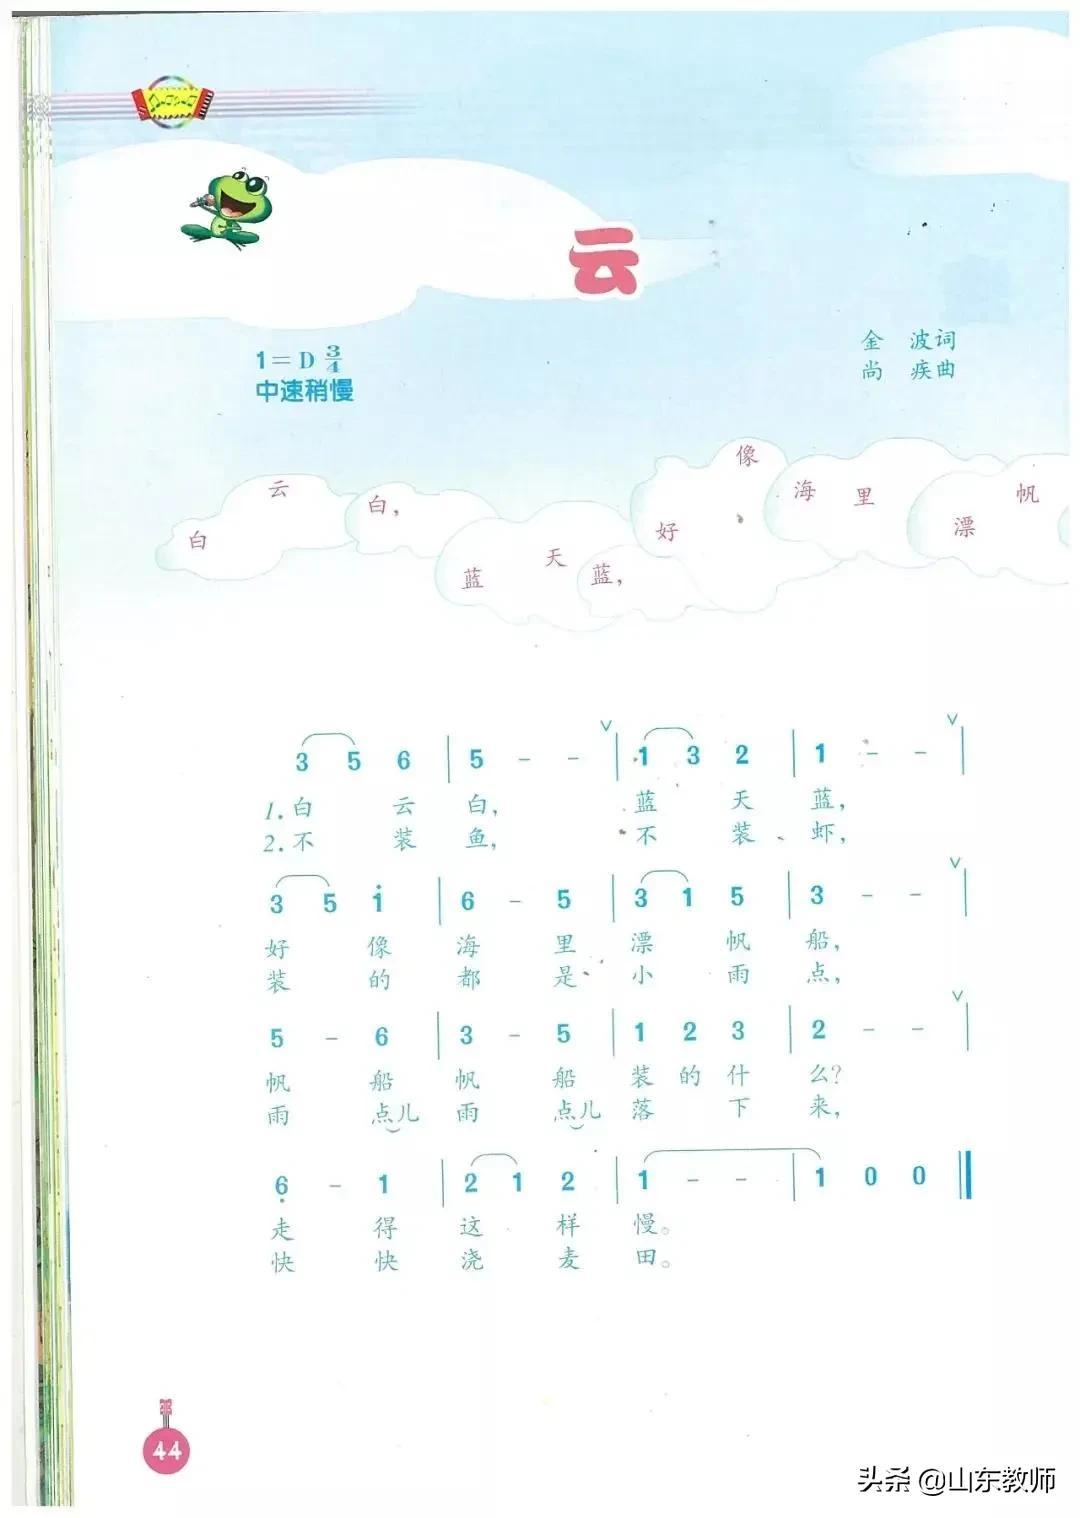 云
1=D 3/4
中速稍慢
金 波词
尚 疾曲
白 云 白, 蓝 天 蓝, 好 像 海 里 漂 帆
3 5 6 | 5 - - ∨ | 1 3 2 | 1 - - ∨ |
1.白 云 白, 蓝 天 蓝,
2.不 装 鱼, 不 装 虾,
3 5 i | 6 - 5 | 3 1 5 | 3 - - ∨ |
好 像 海 里 漂 帆 船,
装 的 都 是 小 雨 点,
5 - 6 | 3 - 5 | 1 2 3 | 2 - - ∨ |
帆 船 帆 船 装 的 什 么?
雨 点儿 雨 点儿 落 下 来,
6̣ - 1 | 2 1 2 | 1 - - | 1 0 0 ‖
走 得 这 样 慢。
快 快 浇 麦 田。
44
头条 @山东教师